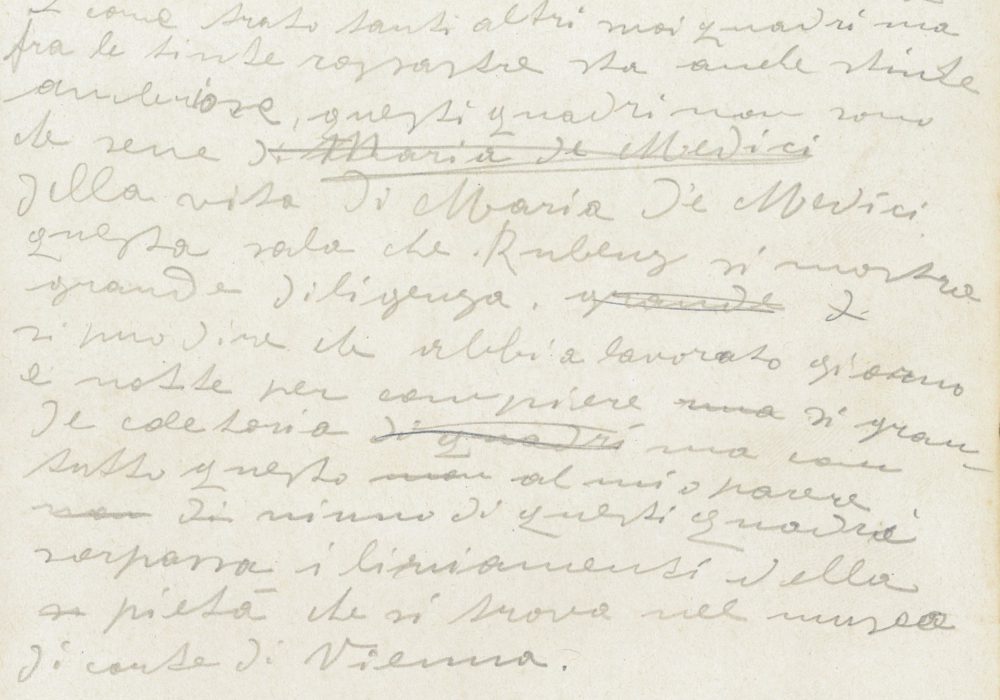 e come trato tanti altri suoi quadri ma
fra le tinte rossastre sta anche stinte
questi quadri non sono
che scene di Maria de Medici
della vita di Maria De Medici
questa sala che Rubens si mostra
grande diligenza. grande d.
si può dire che abbia lavorato giorno
e notte per compiere una si gran-
de di quadri ma con
tutto questo non al mio parere
non di ninno di questi quadri
sorpassa i liniamenti della
s pietà che si trova nel museo
di corte di Vienna.